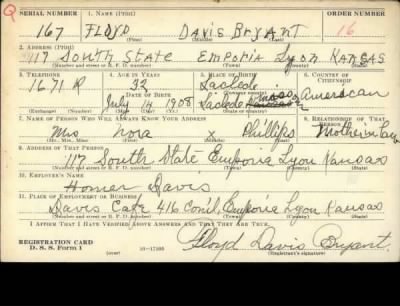 Q
SERIAL NUMBER 1. NAME (Print) ORDER NUMBER
167 FLOYD DAVIS BRYANT 16
2. ADDRESS (Print)
117 SOUTH STATE EMPORIA LYON KANSAS
(Number and street or R. F. D. number) (Town) (County) (State)
3. TELEPHONE 4. AGE IN YEARS 5. PLACE OF BIRTH 6. COUNTRY OF CITIZENSHIP
1671 R 32 Laclede
DATE OF BIRTH
July 14 1908 Laclede American
(Exchange) (Number) (Mo.) (Day) (Yr.)
7. NAME OF PERSON WHO WILL ALWAYS KNOW YOUR ADDRESS 8. RELATIONSHIP OF THAT PERSON
Mrs Nora x Phillips Mother in law
9. ADDRESS OF THAT PERSON
117 South State Emporia Lyon Kansas
(Number and street or R. F. D. number) (Town) (County) (State)
10. EMPLOYER'S NAME
Homer Davis
11. PLACE OF EMPLOYMENT OR BUSINESS
Davis Cafe 416 Com'l, Emporia Lyon Kansas
(Number and street or R. F. D. number) (Town) (County) (State)
I AFFIRM THAT I HAVE VERIFIED ABOVE ANSWERS AND THAT THEY ARE TRUE.
REGISTRATION CARD
D. S. S. Form 1 (over) 16-17105 Floyd Davis Bryant
(Registrant's signature)